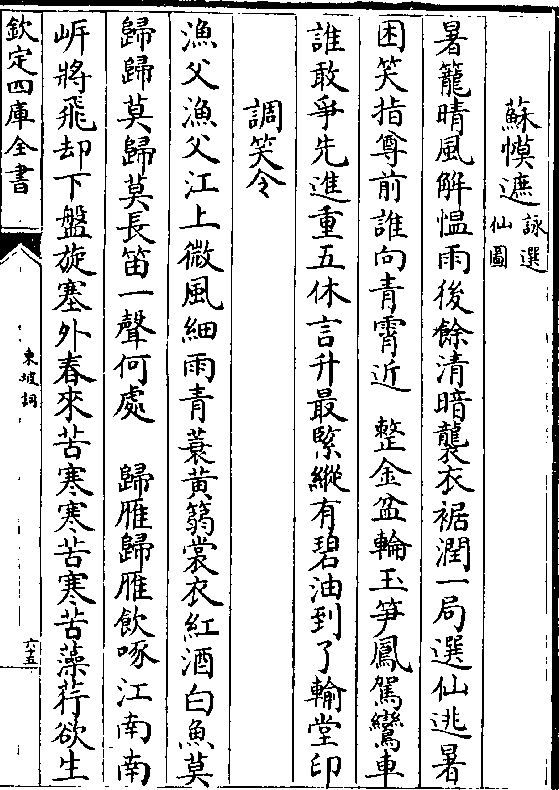 蘇幙遮詠選仙圖
暑籠晴風解愠雨後餘清暗襲衣裾潤一局選仙逃暑
困笑指尊前誰向青霄近　整金盆輪玉笋鳳駕鸞車
誰敢爭先進重五休言升最緊縱有碧油到了輸堂印
調笑令
漁父漁父江上微風細雨青蓑黃篛裳衣紅酒白魚莫
歸歸莫歸莫長笛一聲何處　歸雁歸雁飲啄江南南
岍將飛却下盤旋塞外春來苦寒寒苦寒苦藻荇欲生
欽定四庫全書
東坡詞
六五